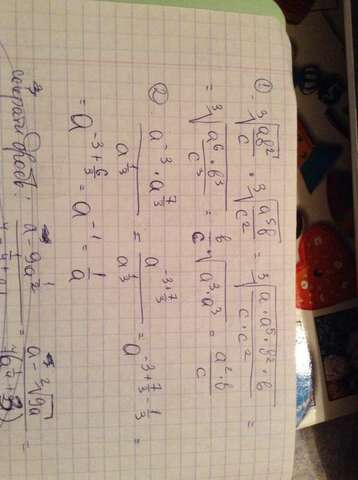 ① ∛(ab²/c) · ∛(a⁵b/c²) = ∛(a·a⁵·b²·b/c·c²) =
= ∛(a⁶·b³/c³) = b/c · ∛(a³·a³) = a²·b/c
② a⁻³·a^(7/3) / a^(1/3) = a^(-3+7/3) / a^(1/3) = a^(-3+7/3-1/3) =
= a^(-3+6/3) = a⁻¹ = 1/a
3) сократи дробь: